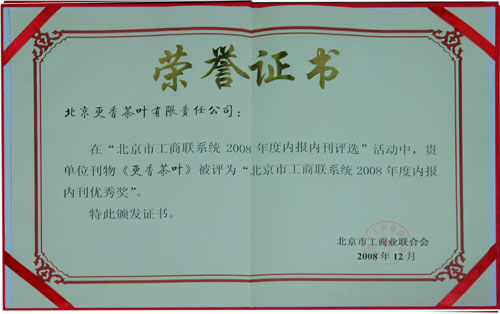 荣誉证书
北京更香茶叶有限责任公司：
在“北京市工商联系统 2008 年度内报内刊评选”活动中，贵
单位刊物《更香茶叶》被评为“北京市工商联系统 2008 年度内报
内刊优秀奖”。
特此颁发证书。
北京市工商业联合会
2008 年 12 月